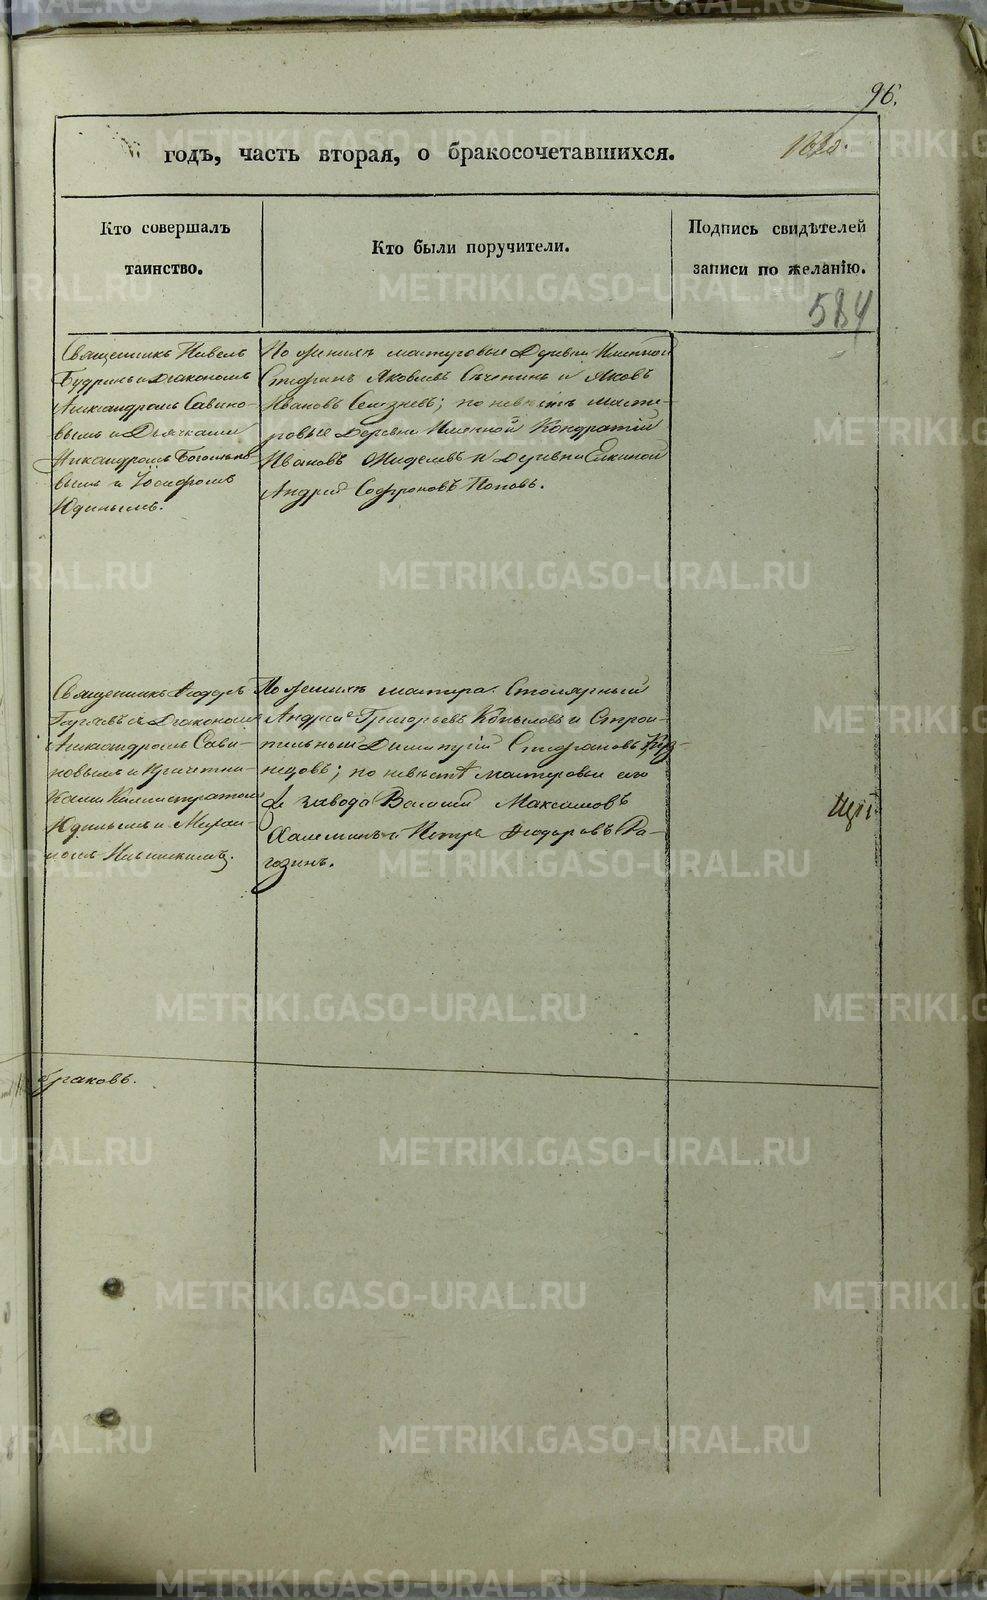 96.
годъ, часть вторая, о бракосочетавшихся.
Кто совершалъ
таинство.
Кто были поручители.
Подпись свидѣтелей
записи по желанію.
584
Священникъ Павелъ
Будринъ и діакономъ
Александромъ Савино-
вымъ и Дьячками
Никандромъ Боголепо-
вымъ и Іосифомъ
Юдинымъ.
По женихѣ мастеровые Деревни Именной
Стефанъ Яковлевъ Сѣченинъ и Яковъ
Ивановъ Селезневъ; по невѣстѣ масте-
ровые Деревни Именной Кондратій
Ивановъ и Деревни Елкиной
Андрей Софроновъ Поповъ.
Священникъ Ѳедоръ
и Діакономъ
Александромъ Сави-
новымъ и Причетни-
ками Каллистратомъ
Юдинымъ и Михаи-
ломъ
По женихѣ мастера: Столярный
Андрей Григорьевъ Копыловъ и Строи-
тельный Димитрій Стефановъ Куз-
нецовъ; по невѣстѣ мастеровые сего
же завода Василій Максимовъ
Халеминъ и Петръ Ѳедоровъ Ра-
гозинъ.
браковъ.
METRIKI.GASO-URAL.RU